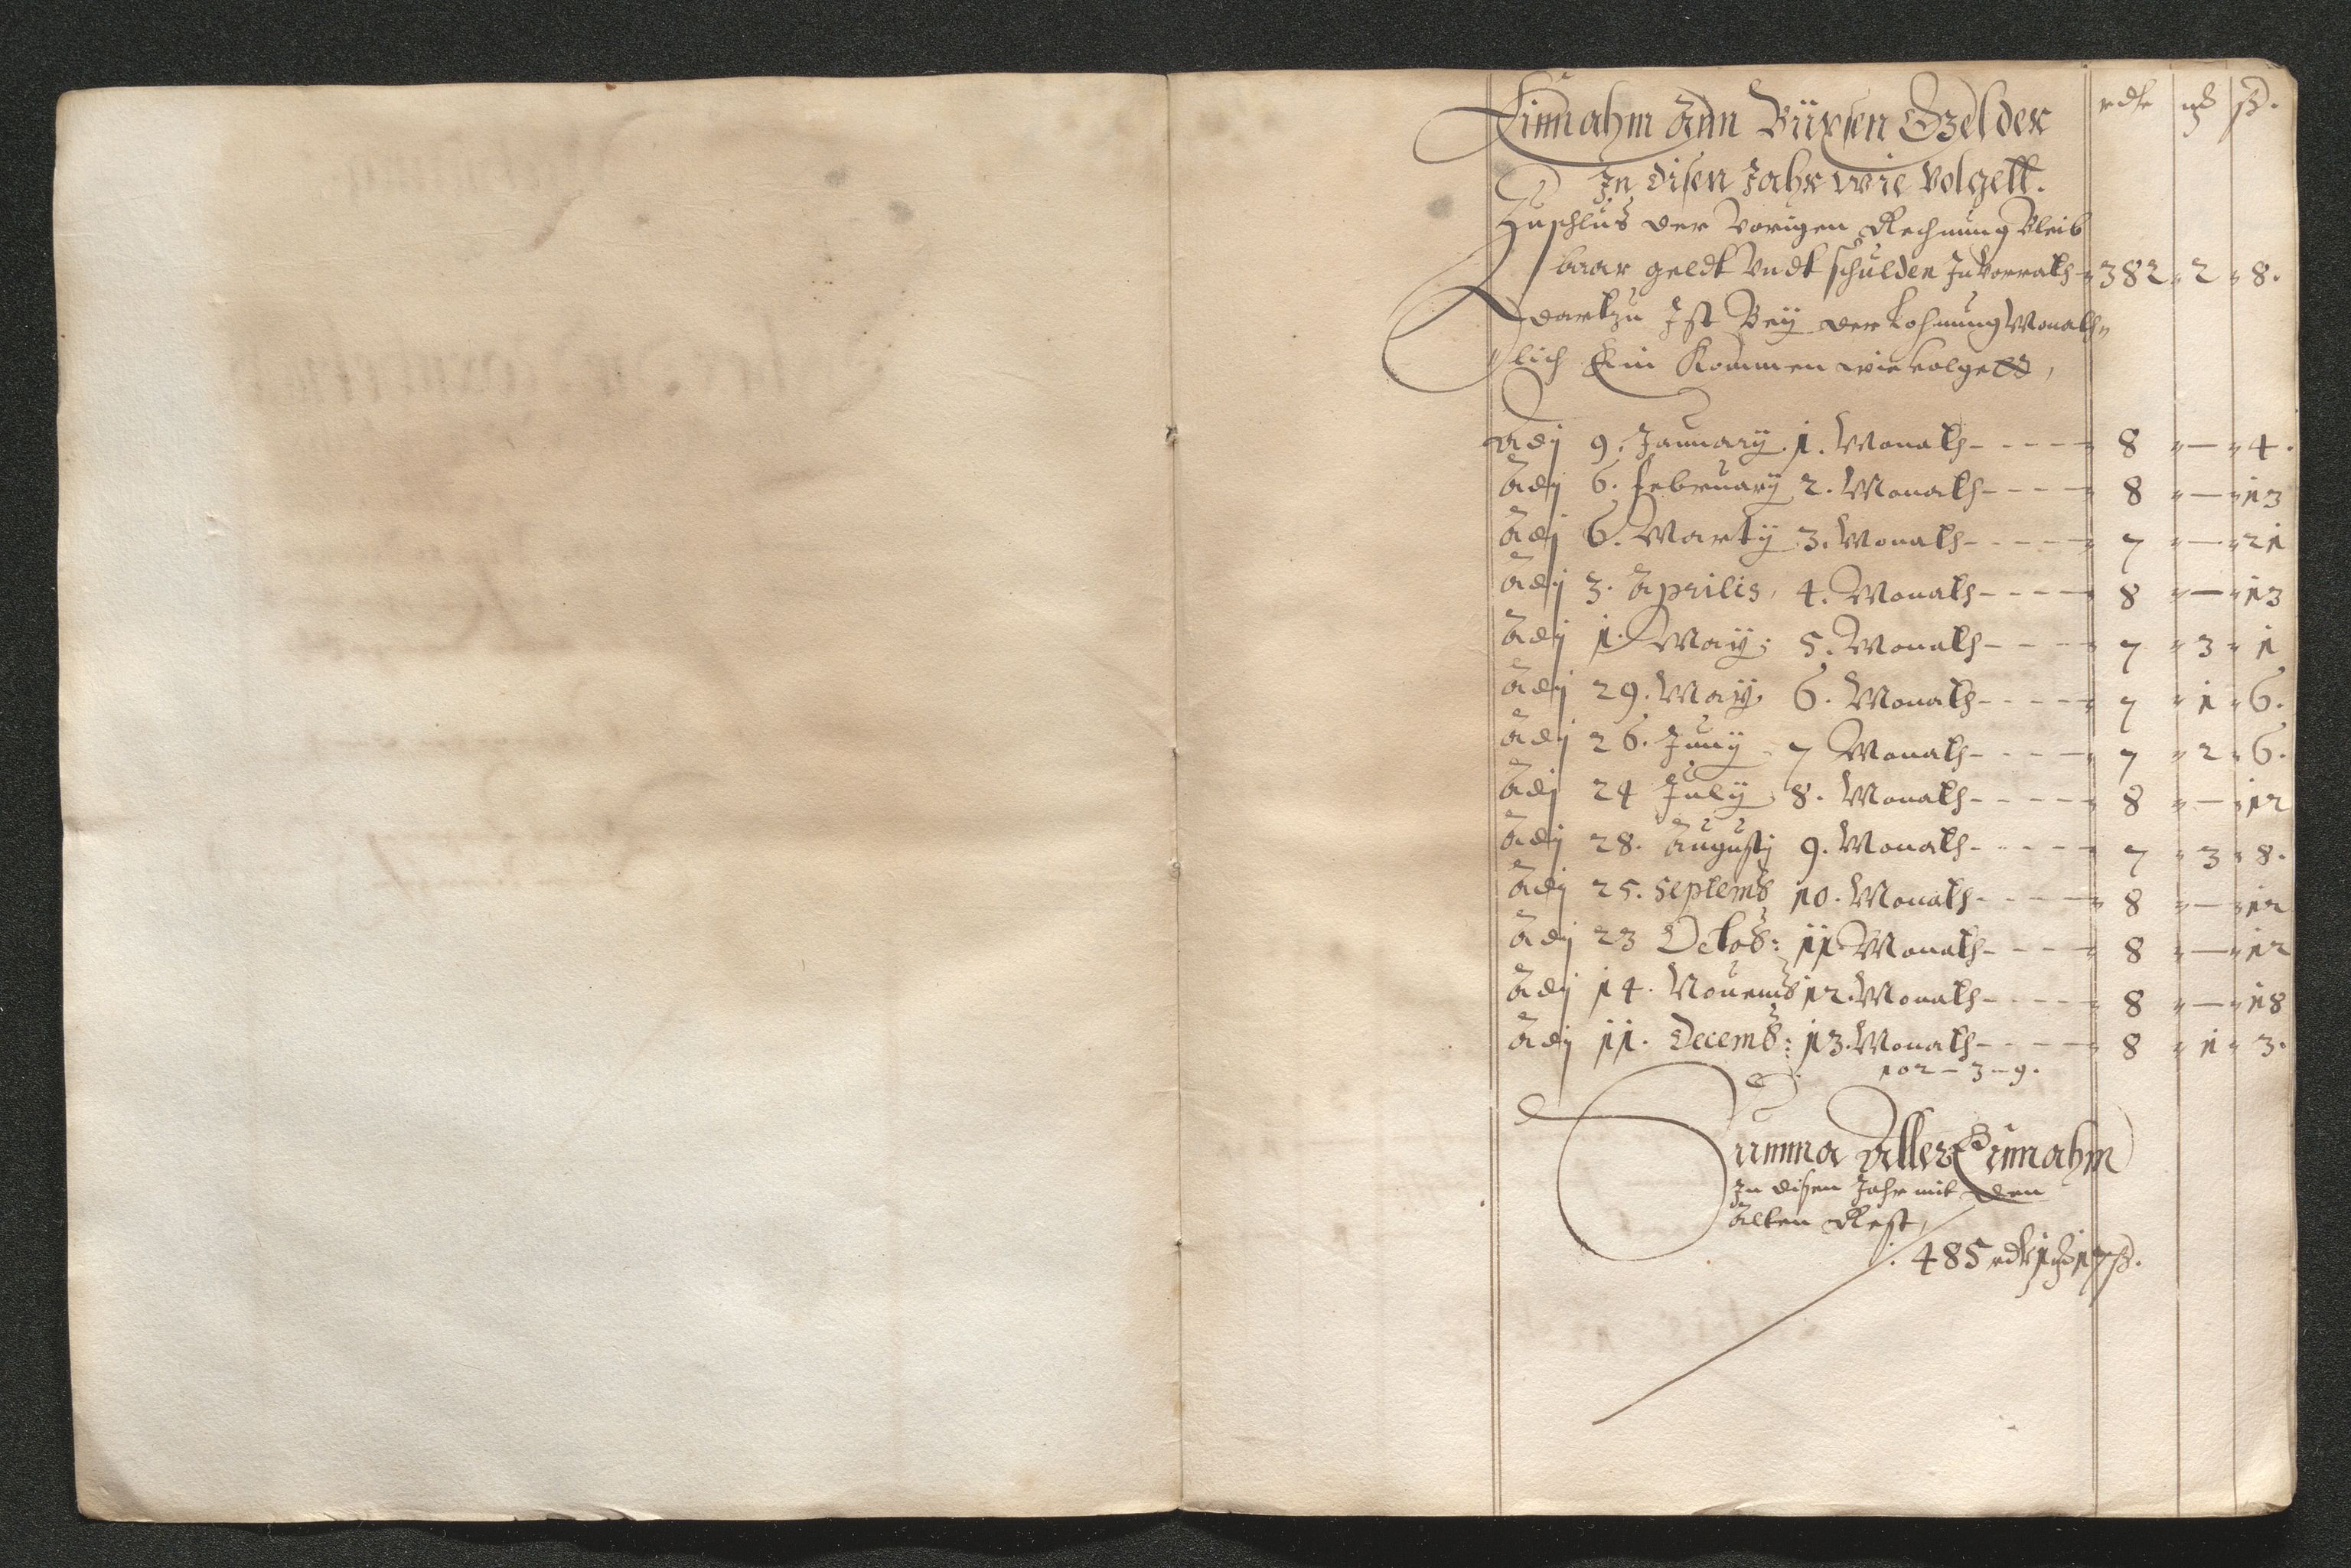 Einnahm Ann Büxsen Gelder
rdlr mß ß.
In disen Jahr wie Volgett.
Zuschlus der Vorigen Rechnung Bleib
baar geldt Vndt schulden In Vorrath 382 2 8.
dartzu Ist Beÿ der Lohnung Monath„
lich Ein Kommen wie volgett,
Adj 9. Januarÿ 1. Monath - - - - 8 „ — „ 4.
Adj 6. februarÿ 2. Monath - - - - 8 „ — „ 13
Adj 6. Martÿ 3. Monath - - - - 7 „ — „ 21
Adj 3. Aprilis, 4. Monath - - - - 8 „ — „ 13
Adj 1. Maÿ; 5. Monath - - - - 7 „ 3 „ 1
Adj 29. Maÿ, 6. Monath - - - - 7 „ 1 „ 6.
Adj 26. Junÿ 7 Monath - - - - 7 „ 2 „ 6.
Adj 24 Julÿ 8. Monath - - - - 8 „ — „ 12
Adj 28. Augustj 9. Monath - - - - 7 „ 3 „ 8.
Adj 25. Septemb 10. Monath - - - - 8 „ — „ 12
Adj 23 Octob: 11. Monath - - - - 8 „ — „ 12
Adj 14. Nouemb 12. Monath - - - - 8 „ — „ 18
Adj 11. Decemb: 13. Monath - - - - 8 „ 1 „ 3.
102 — 3 — 9.
Summa Aller Einnahm
In disen Jahr mit den
Alten Rest,
: 485 rdlr 1 mß 17 ß.